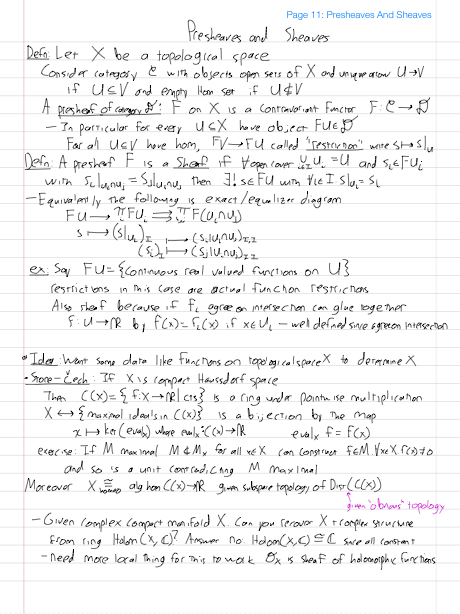 Page 11: Presheaves And Sheaves
Presheaves and Sheaves
Defn: Let X be a topological space
Consider category C with objects open sets of X and unique arrow U→V
if U⊆V and empty Hom set if U⊄V
A presheaf of category D: F on X is a contravariant functor F: C→D
– In particular for every U⊆X have object FU∈D
For all U⊆V have hom, FV→FU called "restriction" write s↦s|_U
Defn: A presheaf F is a Sheaf if ∀ open cover ∪_{i∈I} U_i = U and s_i∈FU_i
with s_i|_{U_i∩U_j} = s_j|_{U_i∩U_j}, then ∃! s∈FU with ∀i∈I s|_{U_i} = s_i
– Equivalently the following is exact/equalizer diagram
FU → π_I FU_i ⇉ π_{I,I} F(U_i∩U_j)
s ↦ (s|_{U_i})_I
(s_i)_I ↦ (s_i|_{U_i∩U_j})_{I,I}
↦ (s_j|_{U_i∩U_j})_{I,I}
ex: Say FU = {continuous real valued functions on U}
restrictions in this case are actual function restrictions
Also sheaf because if f_i agree on intersection can glue together
f: U→ℝ by f(x) = f_i(x) if x∈U_i – well defined since agree on intersection
• Idea: Want some data like functions on topological space X to determine X
• Stone-Čech: If X is compact Hausdorff space
Then C(X) = {f: X→ℝ | cts} is a ring under pointwise multiplication
X ↔ {maximal ideals in C(X)} is a bijection by the map
x ↦ ker(eval_x) where eval_x: C(X)→ℝ eval_x f = f(x)
exercise: If M maximal M≠M_x for all x∈X can construct f∈M ∀x∈X f(x)≠0
and so is a unit contradicting M maximal
Moreover X ≅_{homeo} alg hom C(X)→ℝ given subspace topology of Dist(C(X))
given "obvious" topology
– Given complex compact manifold X. Can you recover X + complex structure
from ring Holom(X,ℂ)? Answer no: Holom(X,ℂ)≅ℂ since all constant
– need more local thing for this to work O_X is sheaf of holomorphic functions